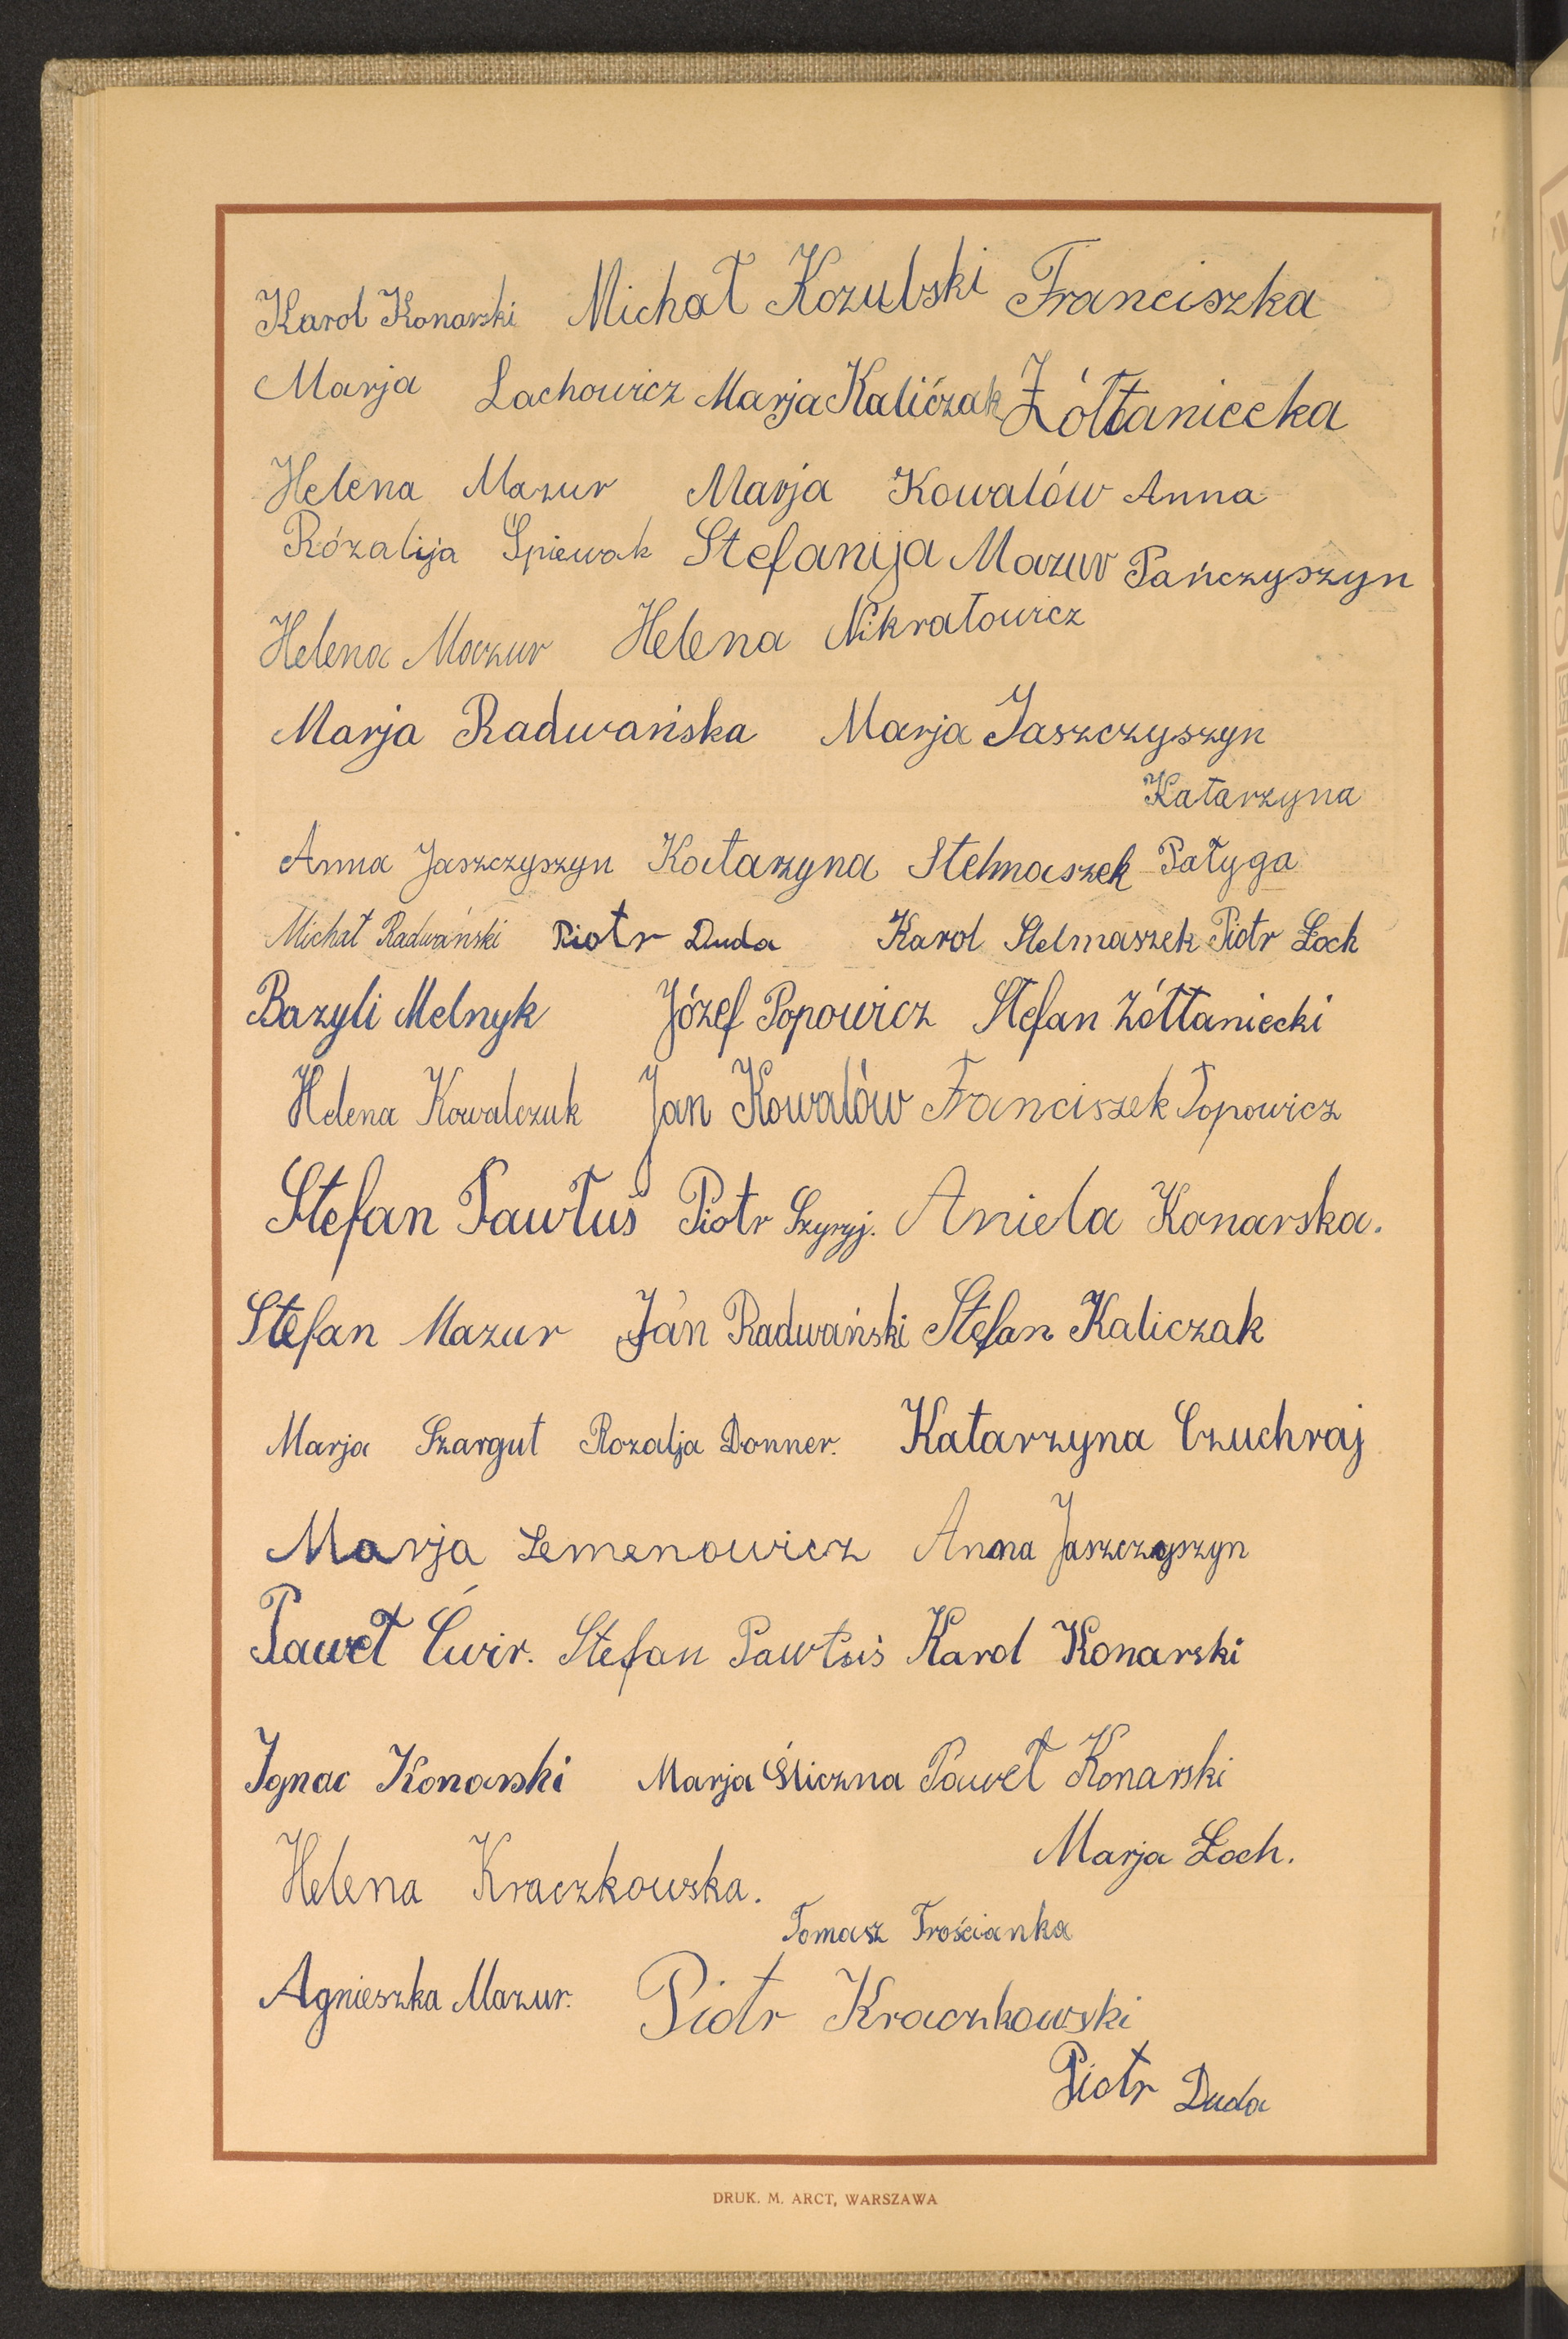 Karol Konarski Michał Kozulski Franciszka
Marja Lachowicz Marja Kalićzak Żółtaniecka
Helena Mazur Marja Kowalów Anna
Rózalija Śpiewak Stefanija Mazur Pańczyszyn
Helena Mazur Helena Nikratowicz
Marja Radwańska Marja Jaszczyszyn
Katarzyna
Anna Jaszczyszyn Katarzyna Stelmaszek Pałyga
Michał Radwański Piotr Duda Karol Stelmaszek Piotr Łoch
Bazyli Melnyk Józef Popowicz Stefan Żółtaniecki
Helena Kowalczuk Jan Kowalów Franciszek Popowicz
Stefan Pawłuś Piotr Szyryj. Aniela Konarska.
Stefan Mazur Jan Radwański Stefan Kaliczak
Marja Szargut Rozalja Donner. Katarzyna Czuchraj
Marja Semenowicz Anna Jaszczyszyn
Paweł Ćwir. Stefan Pawłuś Karol Konarski
Ignac Konarski Marja Śliczna Paweł Konarski
Marja Łoch.
Helena Kraczkowska.
Tomasz Trościanka
Agnieszka Mazur. Piotr Kraczkowski
Piotr Duda
DRUK. M. ARCT, WARSZAWA